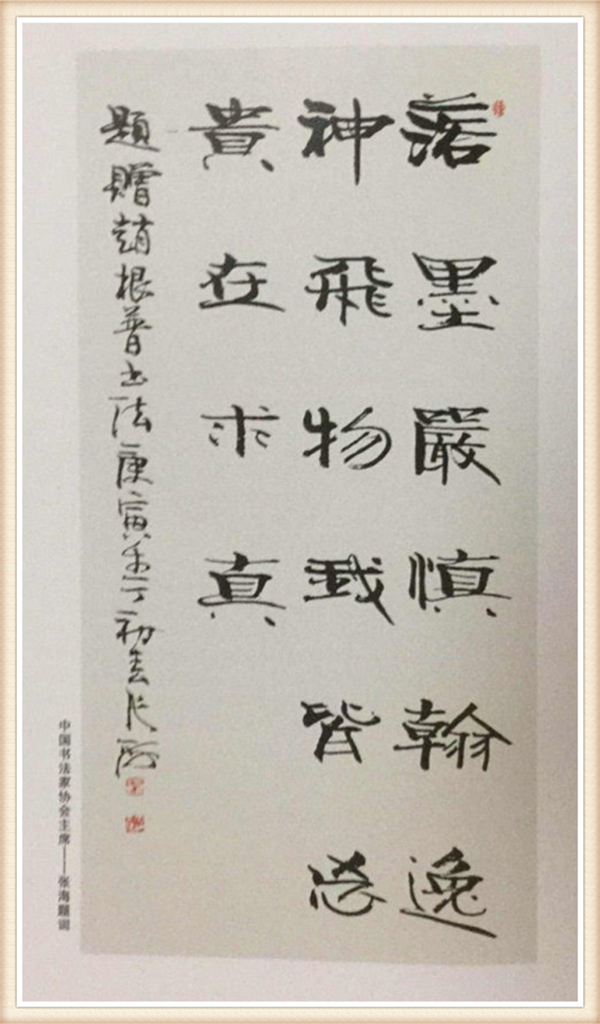 落墨嚴慎翰逸
神飛物我皆忘
貴在求真
題贈趙根普书法庚寅年丁初去张海
中国书法家协会主席——张海题词